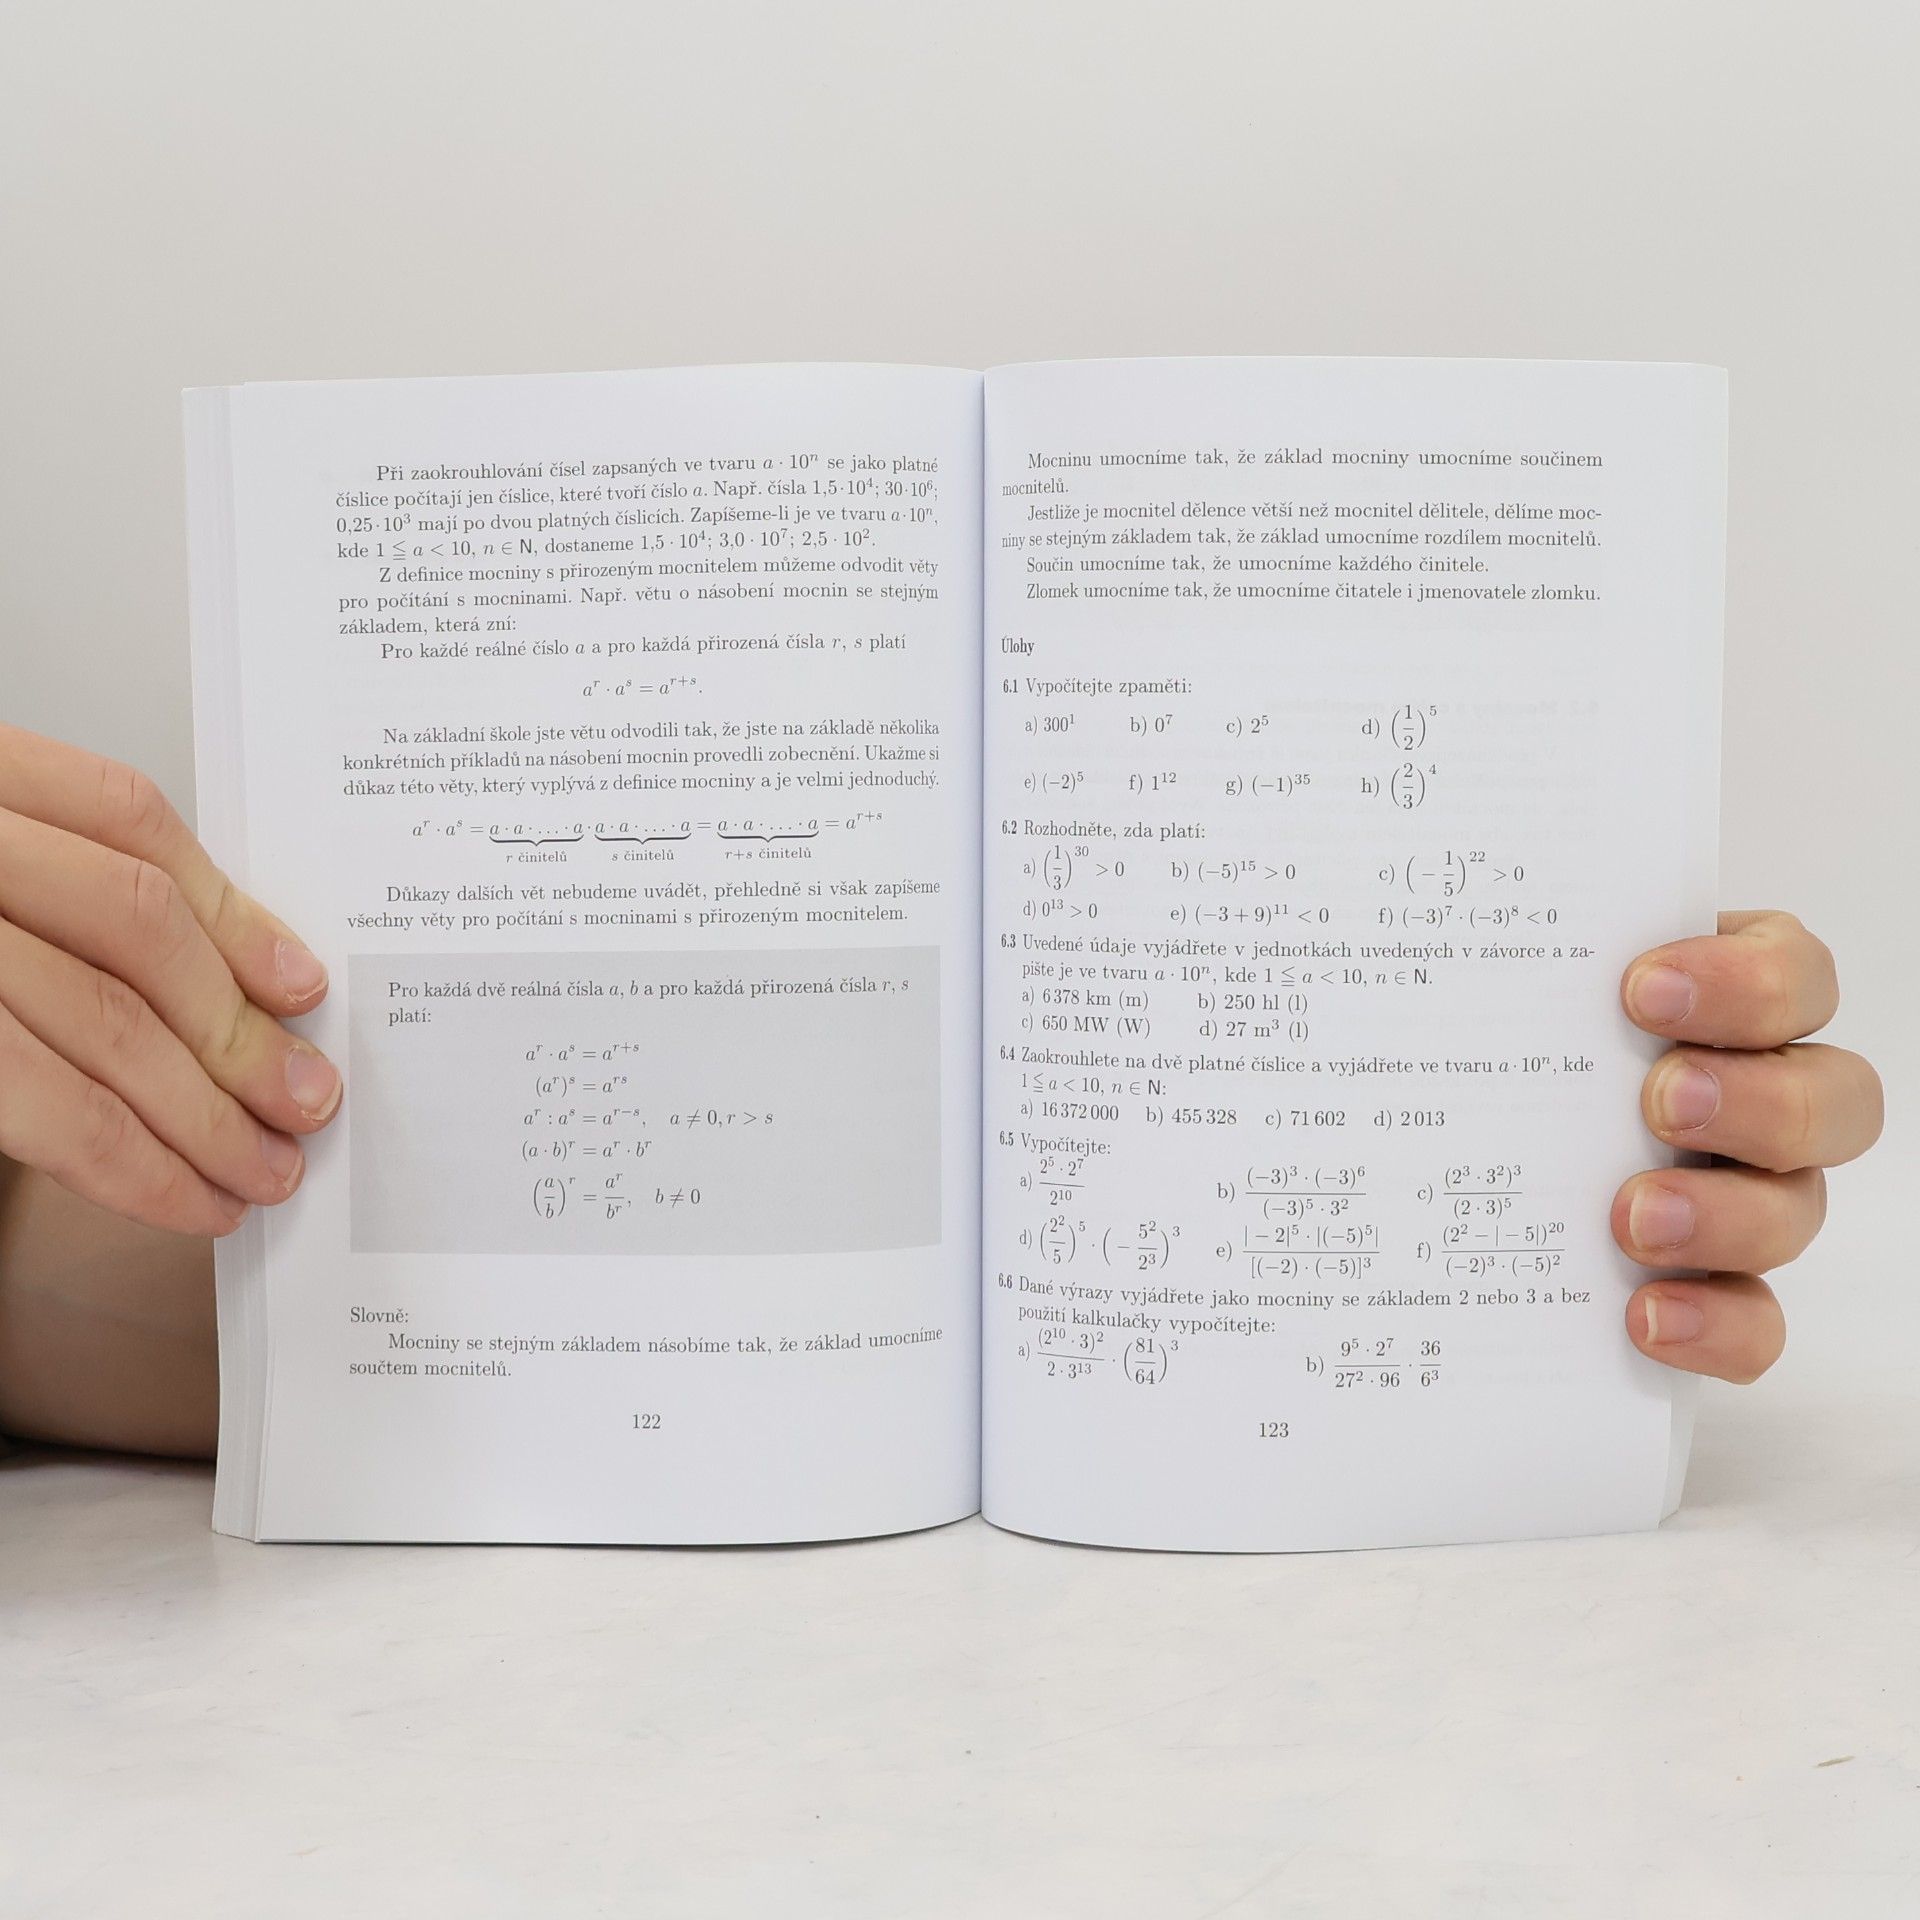 Při zaokrouhlování čísel zapsaných ve tvaru a · 10ⁿ se jako platné
číslice počítají jen číslice, které tvoří číslo a. Např. čísla 1,5·10⁴; 30·10⁶;
0,25·10³ mají po dvou platných číslicích. Zapíšeme-li je ve tvaru a·10ⁿ,
kde 1 ≦ a < 10, n ∈ N, dostaneme 1,5 · 10⁴; 3,0 · 10⁷; 2,5 · 10².
Z definice mocniny s přirozeným mocnitelem můžeme odvodit věty
pro počítání s mocninami. Např. větu o násobení mocnin se stejným
základem, která zní:
Pro každé reálné číslo a a pro každá přirozená čísla r, s platí
aʳ · aˢ = aʳ⁺ˢ.
Na základní škole jste větu odvodili tak, že jste na základě několika
konkrétních příkladů na násobení mocnin provedli zobecnění. Ukažme si
důkaz této věty, který vyplývá z definice mocniny a je velmi jednoduchý.
aʳ · aˢ = a · a · … · a · a · a · … · a = a · a · … · a = aʳ⁺ˢ
r činitelů s činitelů r+s činitelů
Důkazy dalších vět nebudeme uvádět, přehledně si však zapíšeme
všechny věty pro počítání s mocninami s přirozeným mocnitelem.
Pro každá dvě reálná čísla a, b a pro každá přirozená čísla r, s
platí:
aʳ · aˢ = aʳ⁺ˢ
(aʳ)ˢ = aʳˢ
aʳ : aˢ = aʳ⁻ˢ, a ≠ 0, r > s
(a · b)ʳ = aʳ · bʳ
(a/b)ʳ = aʳ/bʳ, b ≠ 0
Slovně:
Mocniny se stejným základem násobíme tak, že základ umocníme
součtem mocnitelů.
122
Mocninu umocníme tak, že základ mocniny umocníme součinem
mocnitelů.
Jestliže je mocnitel dělence větší než mocnitel dělitele, dělíme moc-
niny se stejným základem tak, že základ umocníme rozdílem mocnitelů.
Součin umocníme tak, že umocníme každého činitele.
Zlomek umocníme tak, že umocníme čitatele i jmenovatele zlomku.
Úlohy
6.1 Vypočítejte zpaměti:
a) 300¹ b) 0⁷ c) 2⁵ d) (1/2)⁵
e) (−2)⁵ f) 1¹² g) (−1)³⁵ h) (2/3)⁴
6.2 Rozhodněte, zda platí:
a) (1/3)³⁰ > 0 b) (−5)¹⁵ > 0 c) (−1/5)²² > 0
d) 0¹³ > 0 e) (−3 + 9)¹¹ < 0 f) (−3)⁷ · (−3)⁸ < 0
6.3 Uvedené údaje vyjádřete v jednotkách uvedených v závorce a za-
pište je ve tvaru a · 10ⁿ, kde 1 ≦ a < 10, n ∈ N.
a) 6 378 km (m) b) 250 hl (l)
c) 650 MW (W) d) 27 m³ (l)
6.4 Zaokrouhlete na dvě platné číslice a vyjádřete ve tvaru a · 10ⁿ, kde
1 ≦ a < 10, n ∈ N:
a) 16 372 000 b) 455 328 c) 71 602 d) 2 013
6.5 Vypočítejte:
a) (2⁵ · 2⁷)/2¹⁰ b) ((−3)³ · (−3)⁶)/((−3)⁵ · 3²) c) (2³ · 3²)³/(2 · 3)⁵
d) (2²/5)⁵ · (−5²/2³)³ e) (|−2|⁵ · |(−5)⁵|)/[(−2) · (−5)]³ f) (2² − |−5|)²⁰/((−2)³ · (−5)²)
6.6 Dané výrazy vyjádřete jako mocniny se základem 2 nebo 3 a bez
použití kalkulačky vypočítejte:
a) (2¹⁰ · 3)²/(2 · 3¹³) · (81/64)³ b) (9⁵ · 2⁷)/(27² · 96) · 36/6³
123